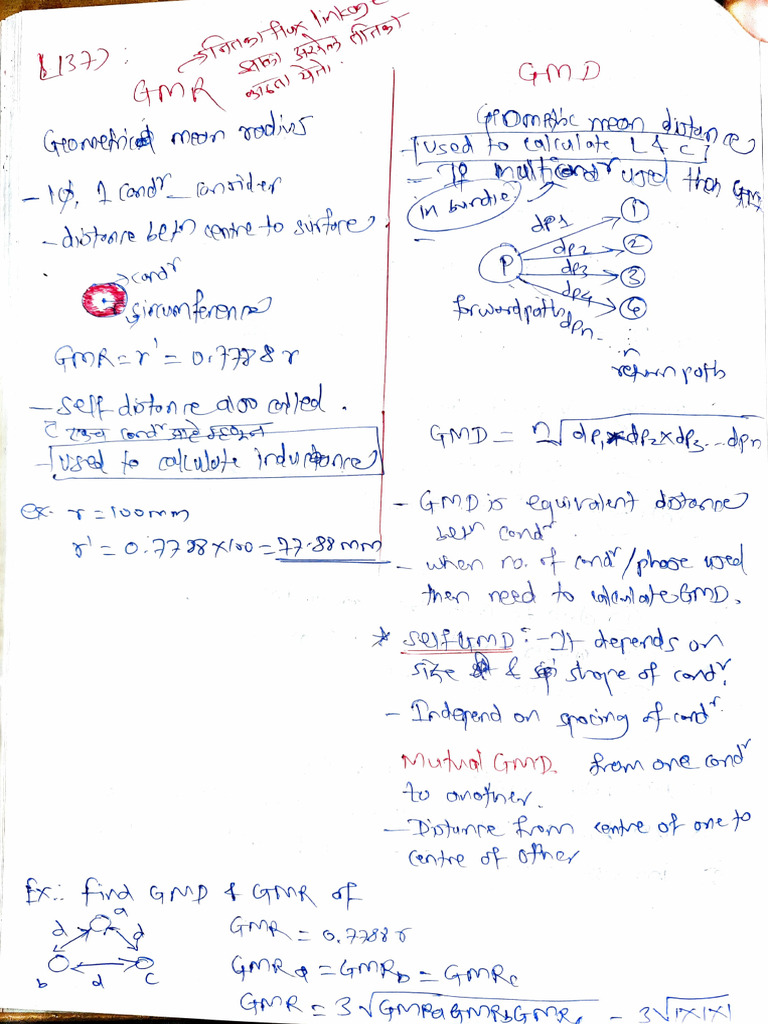 (137) :
GMR
Geometrical mean radius
- 1ϕ, 1 condr consider
- distance betn centre to surface
condr
circumference
GMR = r' = 0.7788 r
- self distance also called.
- used to calculate inductance
ex. r = 100mm
r' = 0.7788 × 100 = 77.88 mm
GMD
Geometric mean distance
- used to calculate L & C
- If multicondr used then GMD
in bundle
P
dp1
dp2
dp3
dp4
dpn
1
2
3
4
n
forward path
return path
GMD = n√dp1 × dp2 × dp3 ... dpn
- GMD is equivalent distance
betn condr.
- when no. of condr/phase used
then need to calculate GMD.
* self GMD :- It depends on
size & shape of condr.
- Independ on spacing of condr.
Mutual GMD. from one condr
to another.
- Distance from centre of one to
centre of other
Ex.: find GMD & GMR of
a
d
d
b
d
c
GMR = 0.7788 r
GMRa = GMRb = GMRc
GMR = 3√GMRa GMRb GMRc = 3√1×1×1